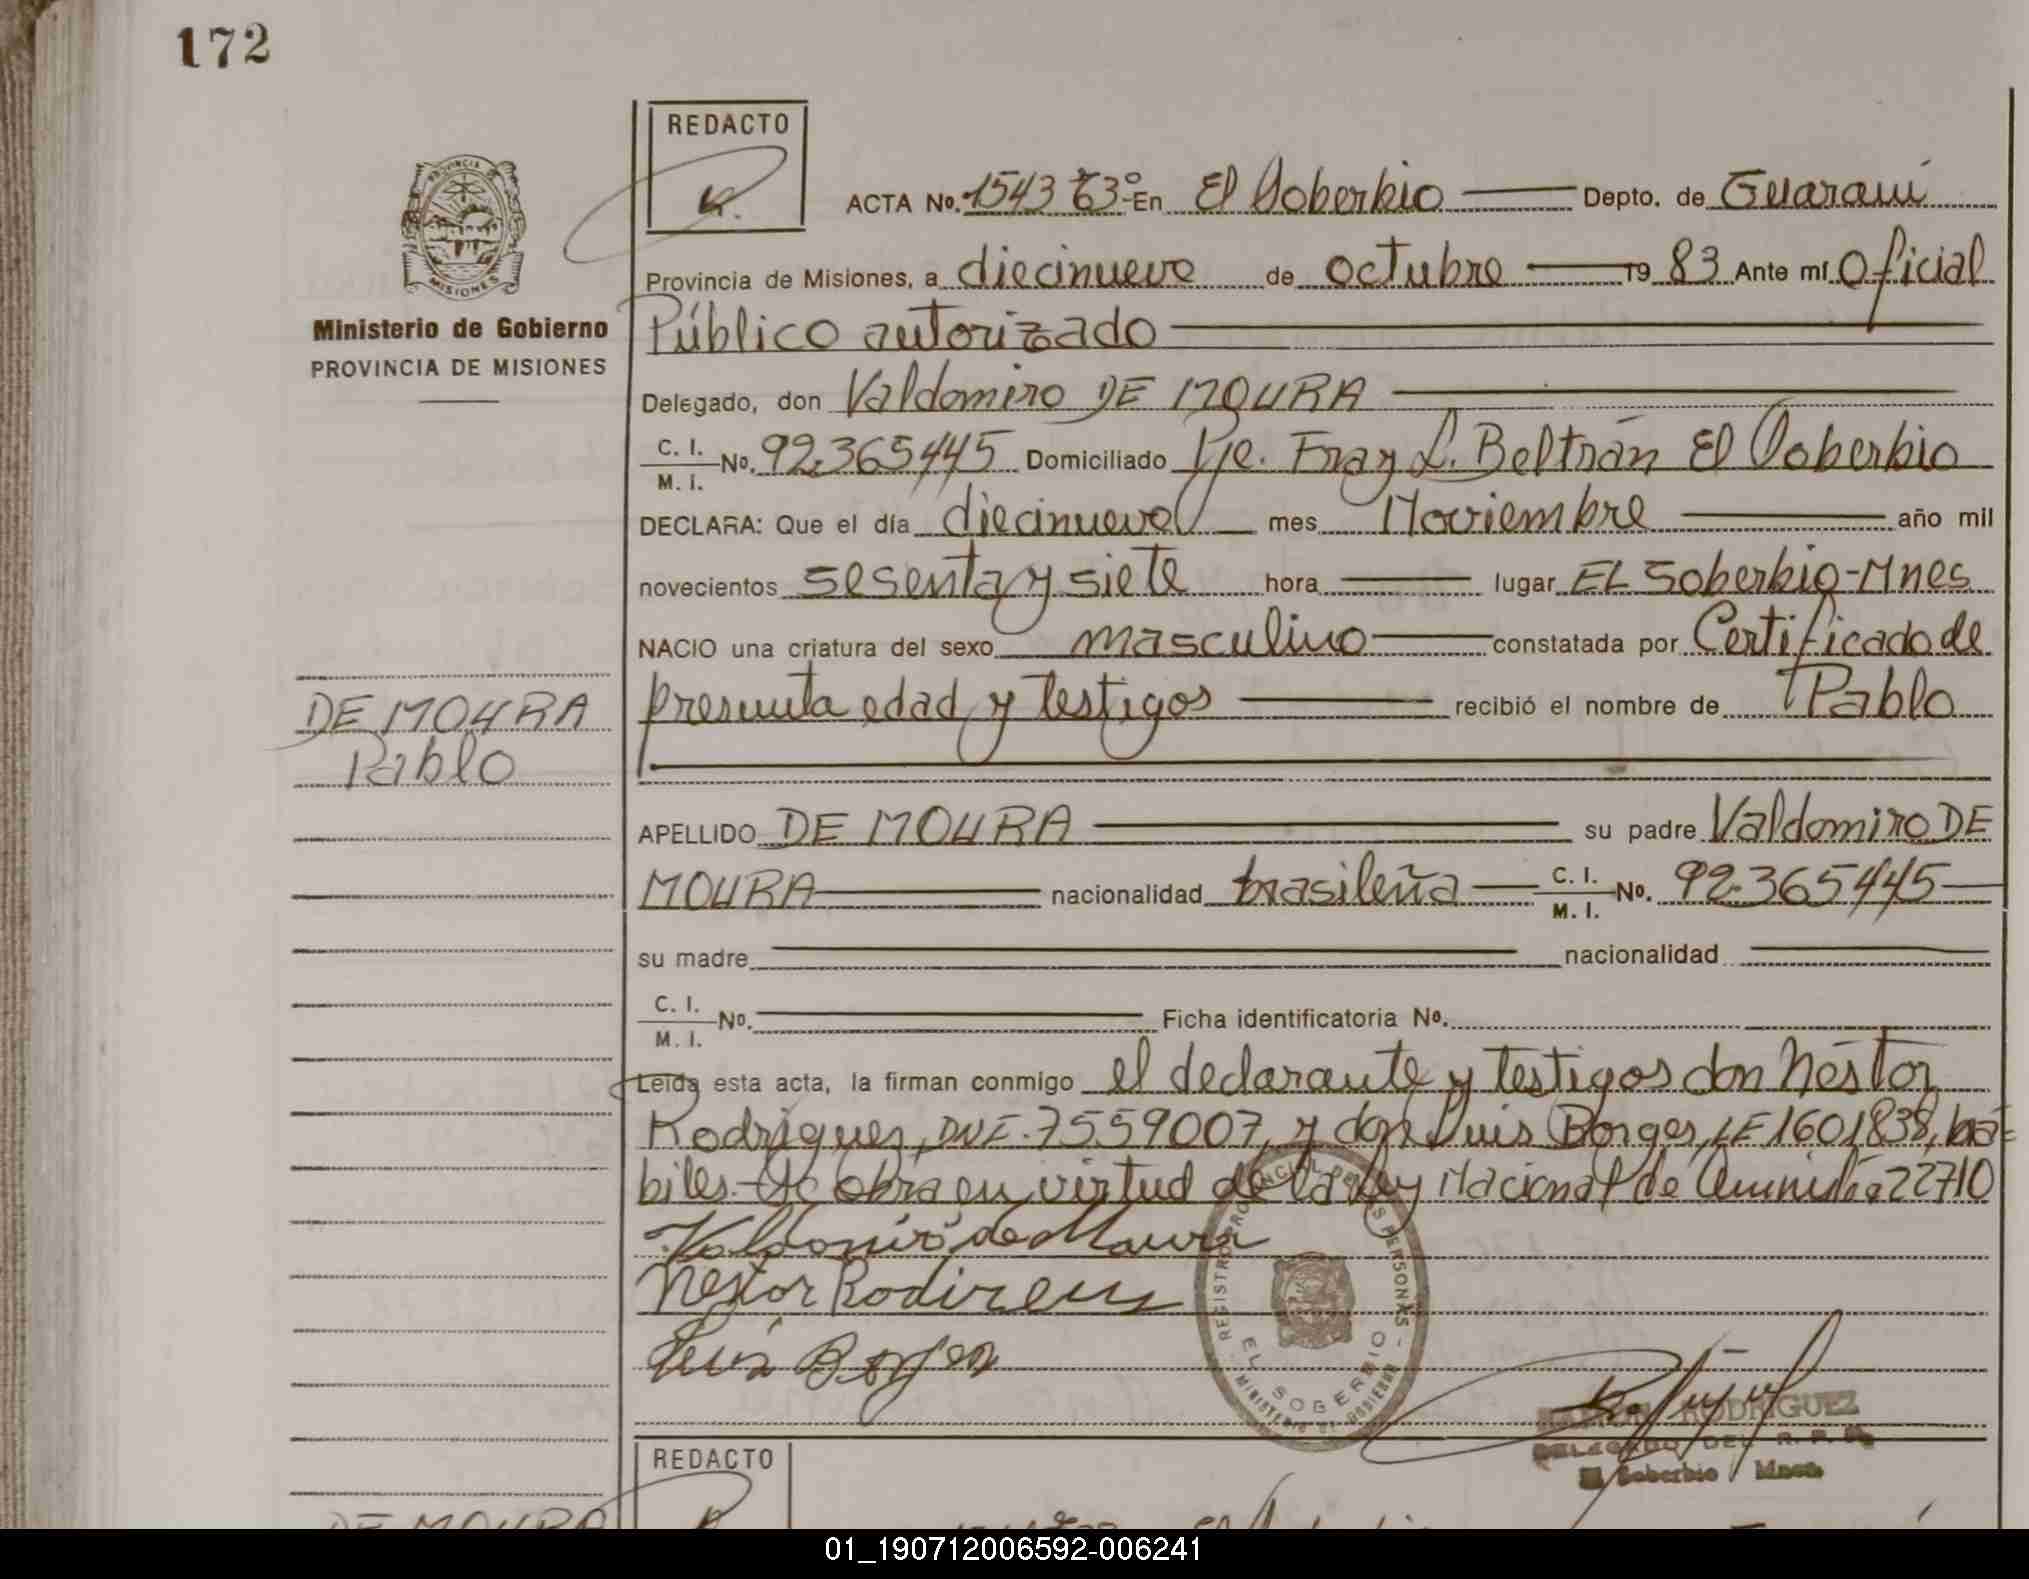 172
REDACTO
ACTA No. 1543 T3º En El Soberbio Depto. de Guaraní
Provincia de Misiones, a diecinueve de octubre 19 83 Ante mí Oficial
Público autorizado
Ministerio de Gobierno
PROVINCIA DE MISIONES
Delegado, don Valdomiro DE MOURA
C. I.
M. I. No. 92.365445 Domiciliado Pje. Fray L. Beltrán El Soberbio
DECLARA: Que el día diecinueve mes Noviembre año mil
novecientos sesenta y siete hora lugar EL Soberbio-Mnes
NACIO una criatura del sexo masculino constatada por Certificado de
presunta edad y testigos recibió el nombre de Pablo
DE MOURA
Pablo
APELLIDO DE MOURA su padre Valdomiro DE
MOURA nacionalidad brasileña C. I.
M. I. No. 92.365445
su madre nacionalidad
C. I.
M. I. No. Ficha identificatoria No.
Leída esta acta, la firman conmigo el declarante y testigos don Néstor
Rodríguez, DNI. 7559007, y don Luis Borges, LE 1601838, há=
biles. Se obra en virtud de la Ley Nacional de Amnistía 22710
Valdomiro de Moura
Nestor Rodirguez
Luis Borges
REGISTRO PROVINCIAL DE LAS PERSONAS
EL SOBERBIO
MINISTERIO DE GOBIERNO
RAMON RODRIGUEZ
DELEGADO DEL R. P. P.
El Soberbio Mnes.
REDACTO
DE MOURA
01_190712006592-006241